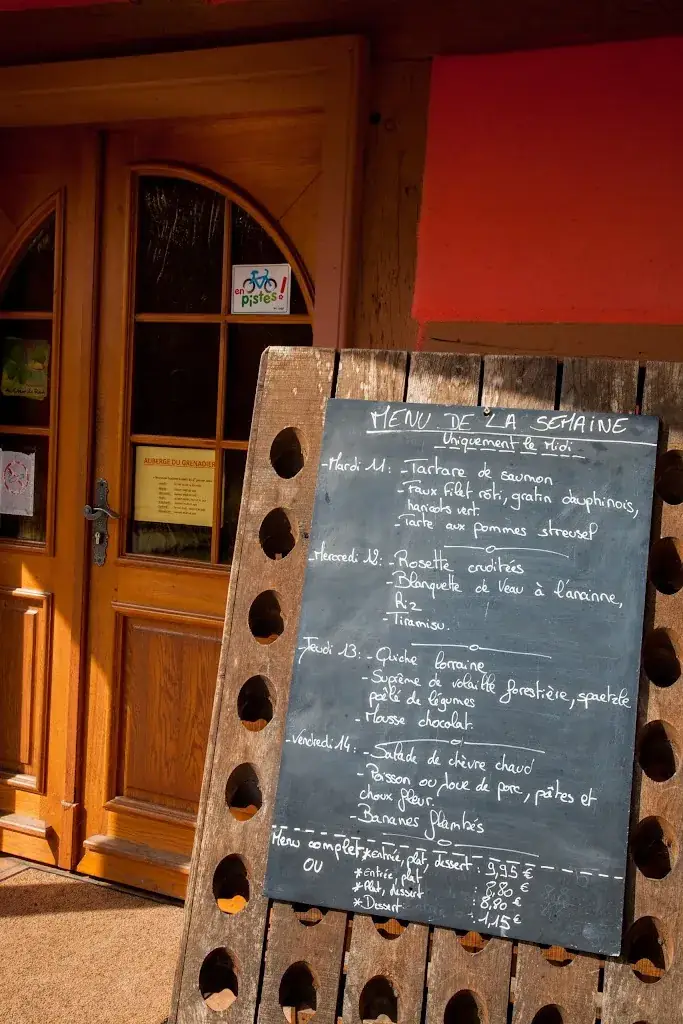 en
pistes!
AUBERGE DU GRENADIER
MENU DE LA SEMAINE
Uniquement le Midi
-Mardi 11: -Tartare de saumon
-Faux filet rôti, gratin dauphinois,
haricots vert.
-Tarte aux pommes streusel
-Mercredi 12: -Rosette crudités
-Blanquette de veau à l'ancinne,
Riz
-Tiramisu.
-Jeudi 13: -Quiche lorraine
-Suprême de volaille forestière, spaetzle
poêlé de légumes
-Mousse chocolat.
-Vendredi 14: -Salade de chèvre chaud
-Poisson ou joue de porc, pâtes et
choux fleur.
-Bananes flambés
Menu complet *entrée, plat, dessert : 9,95 €
OU *entrée, plat : 8,80 €
*Plat, dessert : 8,80 €
*Dessert : 1,15 €